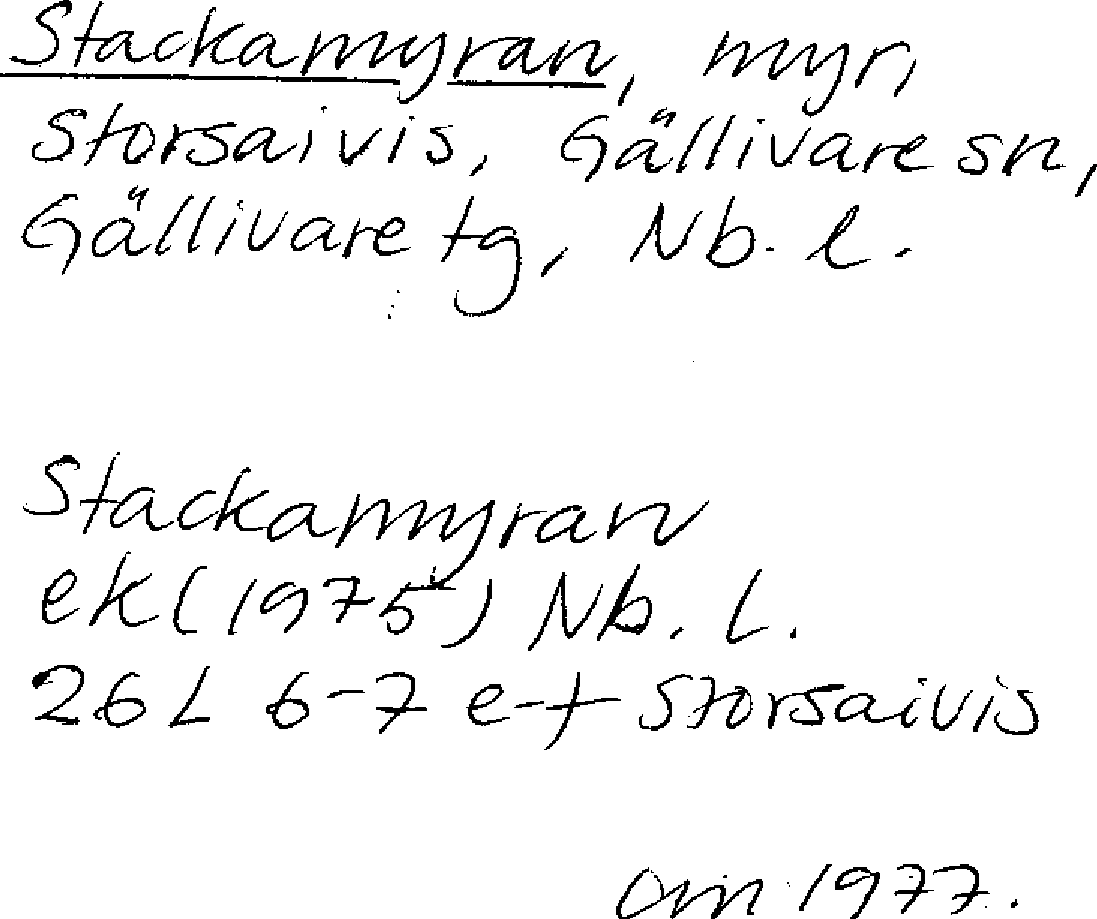 Stackamyran, myr,
Storsaivis, Gällivare sn,
Gällivare tg, Nb. l.
Stackamyran
ek (1975) Nb. l.
26L 6-7 e-f Storsaivis
1977.